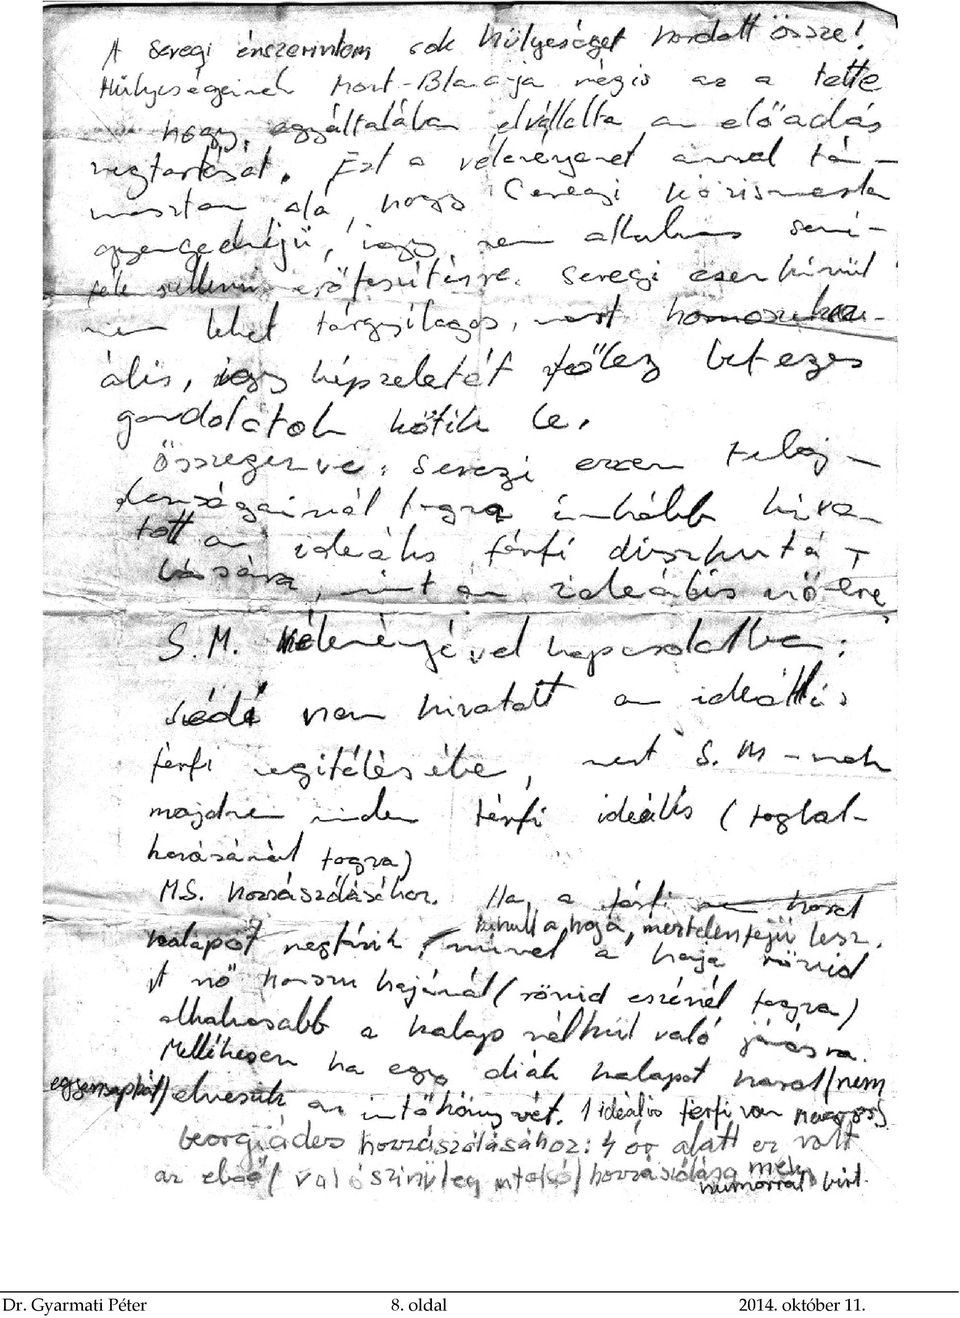 A Seregi énszerintem sok hülyeséget hordott össze!
Hülyeségeinek Mont-Blanc-ja mégis az a tette
hogy, egyáltalában elvállalta az előadás
megtartását. Ezt a véleményemet annal tá-
masztom alá, hogy Seregi közismerten
gyengeelméjű, így nem alkalmas semi-
féle szellemi erőfeszítésre. Seregi ezen kívül
nem lehet tárgyilagos, mert homoszexu-
ális, így képzeletét főleg beteges
gondolatok kötik le.
Összegezve: Seregi ezen tulaj-
donságainál fogva inkább hiva-
tott az ideális férfi diszku
, mint az ideális nő-ére
S. M. véleményével kapcsolatba:
nem hivatott az ideállis
férfi megitélésébe, mert S. M-nek
majdnem minden férfi ideális (foglal-
kozásánál fogva)
M.S. hozzászólásához. Ha a férfi hord
kalapot kihull a haja, mertelenfejű lesz.
mivel a haja rövid
A nő hosszu hajánál (rövid eszénél fogva)
alkalmasabb a kalap nélkül való járásra.
Mellékesen ha egy diák kalapot hord/nem
egyensapkát/elveszik az intőkönyvét. 1 ideális férfi van
Georgiádes hozzászólásához: 4 óra alatt ez volt
az első/valószinüleg utolsó/hozzászólása mely
humorral birt.
Dr. Gyarmati Péter 8. oldal 2014. október 11.